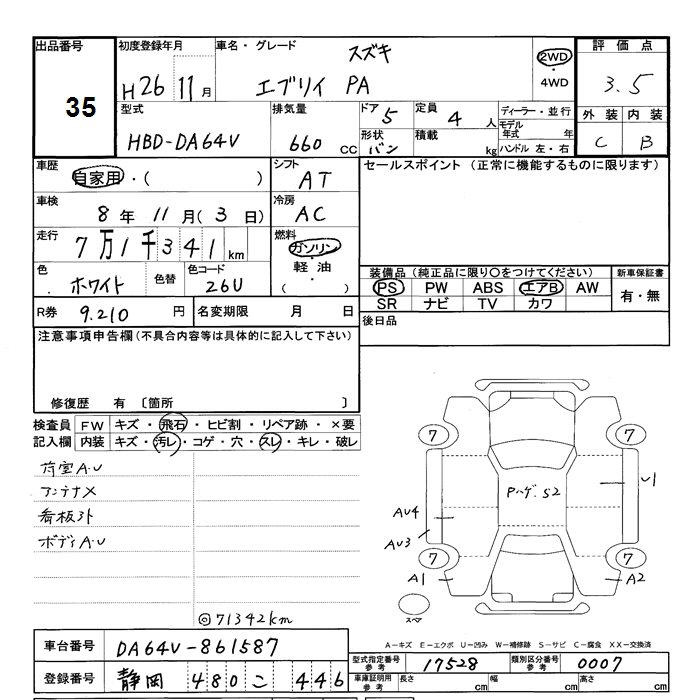 出品番号 初度登録年月 車名・グレード 評価点
35
H26 11月
スズキ
エブリイ PA
2WD
・
4WD
3.5
型式 排気量 ドア 5 定員 4 人 ディーラー・並行 外装 内装
HBD-DA64V 660 CC
形状 バン 積載 kg
モデル年式 年
ハンドル 左・右
C B
車歴 自家用・( ) シフト AT
セールスポイント (正常に機能するものに限ります)
車検 8年 11月(3日) 冷房 AC
走行 7万1千341km 燃料 ガソリン・軽油・( )
色 ホワイト 色替 色コード 26U
装備品(純正品に限り○をつけてください) 新車保証書
PS PW ABS エアB AW 有・無
SR ナビ TV カワ
R券 9.210 円 名変期限 月 日
後日品
注意事項申告欄(不具合内容等は具体的に記入して下さい)
修復歴 有 〔箇所 〕
検査員記入欄
FW キズ・飛石・ヒビ割・リペア跡・×要
内装 キズ・汚レ・コゲ・穴・スレ・キレ・破レ
荷室A.U
アンテナ×
看板外
ボディA.U
◎71342km
7 7
Pハゲ. S2
U1
AU4
AU3
7 7
A1 A2
スペア
A-キズ E-エクボ U-凹み W-補修跡 S-サビ C-腐食 XX-交換済
車台番号 DA64V-861587
型式指定番号 参考 17528 類別区分番号 参考 0007
登録番号 静岡 480 こ 446
車庫証明用 参考 長さ cm 幅 cm 高さ cm